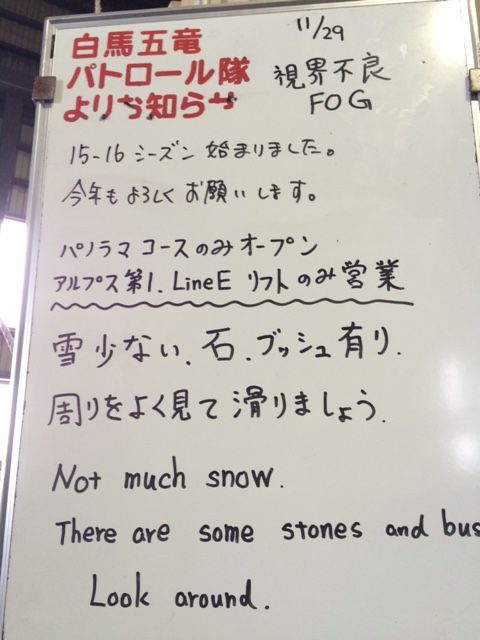 白馬五竜
パトロール隊
よりお知らせ
11/29
視界不良
FOG
15-16 シーズン 始まりました。
今年もよろしくお願いします。
パノラマ コースのみオープン
アルプス第1. Line E リフトのみ営業
雪少ない. 石. ブッシュ有り.
周りをよく見て滑りましょう.
Not much snow.
There are some stones and bus
Look around.